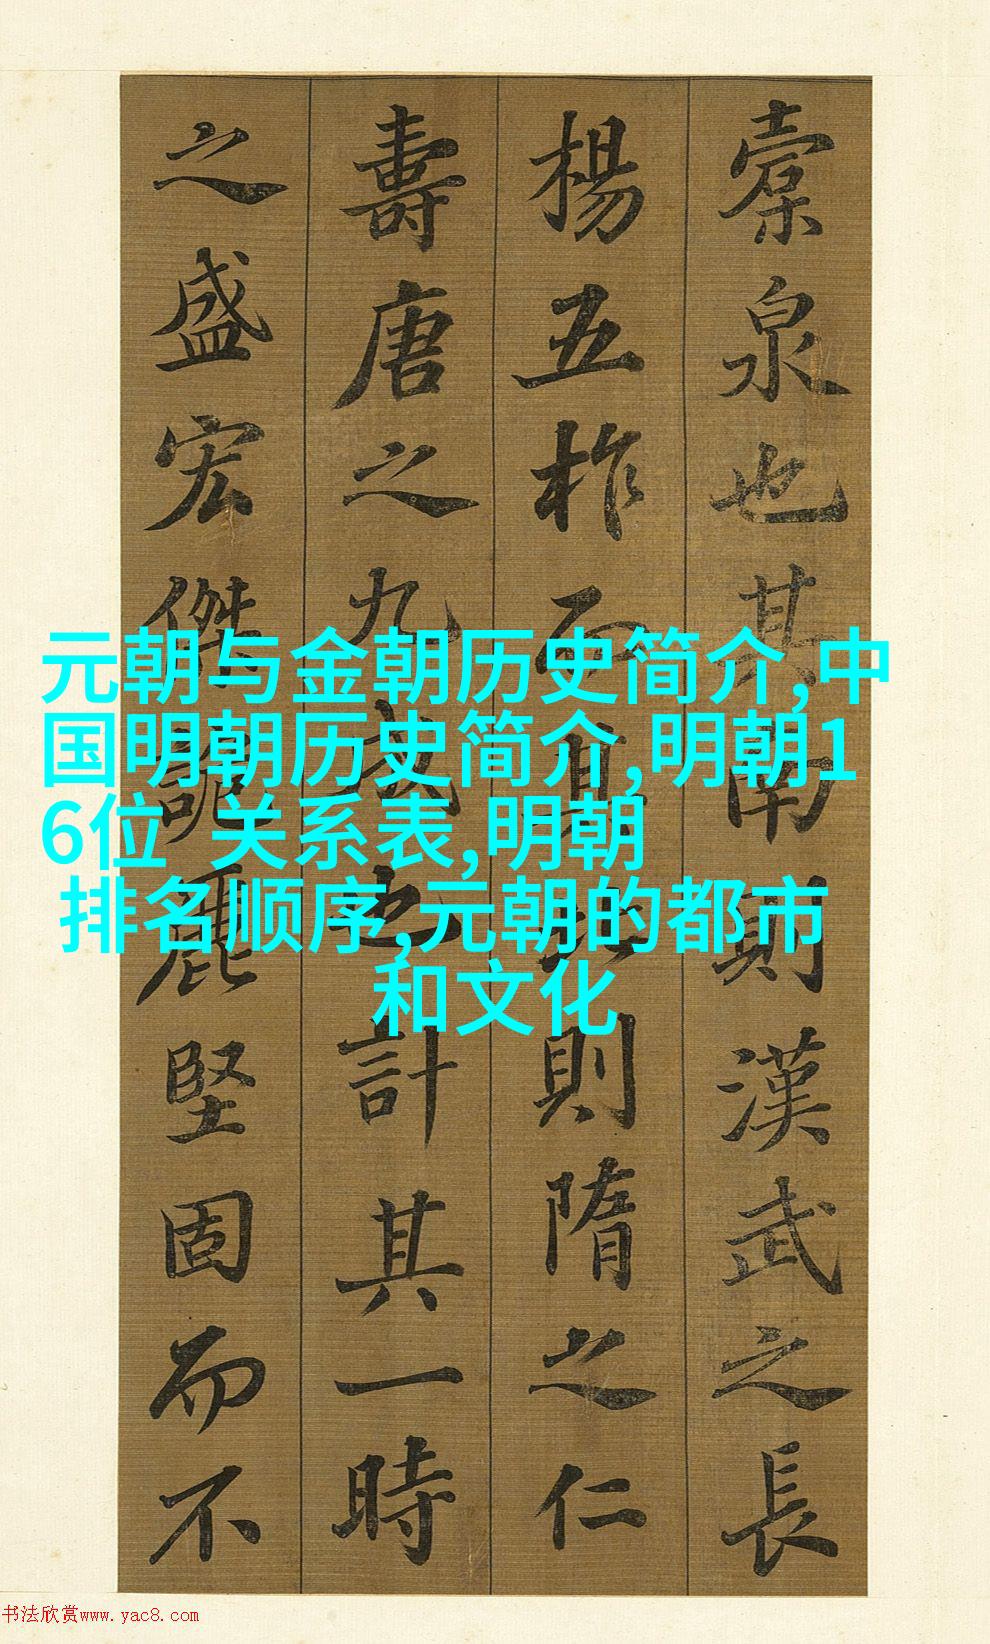 槖泉也其南則漢武之長
楊五柞而其北則隋之仁
壽唐之九成也計其一時
之盛宏傑詭麗堅固而不
元朝与金朝历史简介,中
国明朝历史简介,明朝1
6位 关系表,明朝
排名顺序,元朝的都市
和文化
书法欣赏www.yac8.com